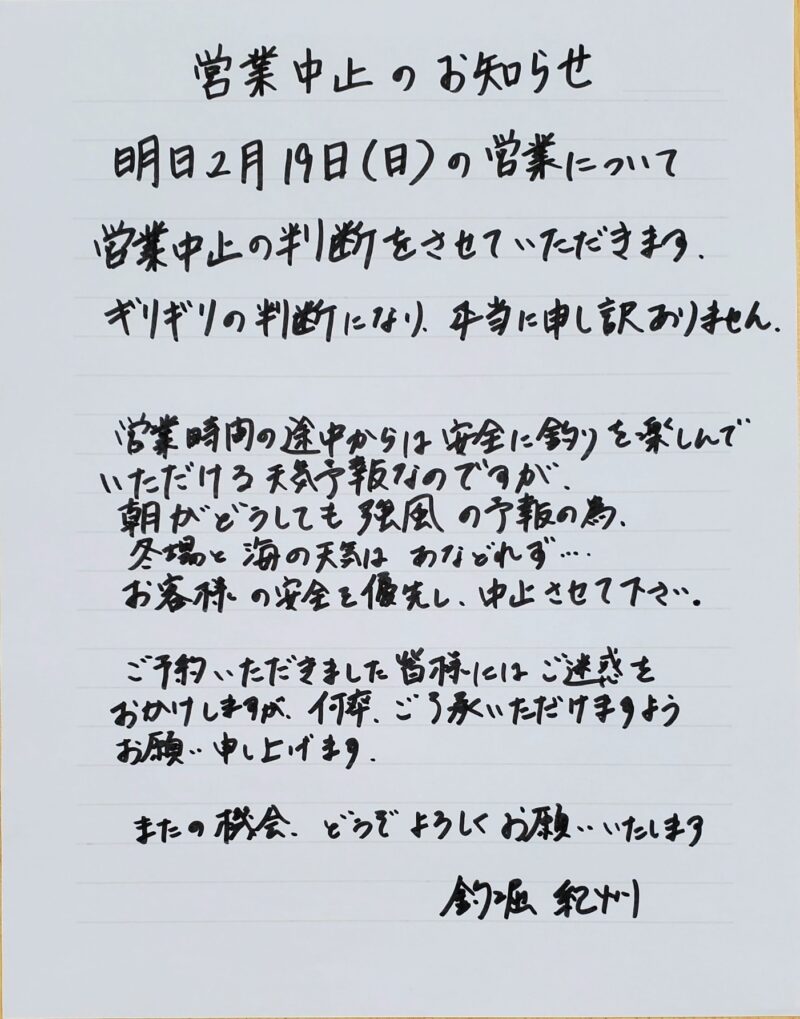 営業中止のお知らせ
明日2月19日(日)の営業について
営業中止の判断をさせていただきます.
ギリギリの判断になり、本当に申し訳ありません.
営業時間の途中からは安全に釣りを楽しんで
いただける天気予報なのですが、
朝がどうしても強風の予報の為、
冬場と海の天気はあなどれず….
お客様の安全を優先し、中止させて下さい。
ご予約いただきました皆様にはご迷惑を
おかけしますが、何卒、ご了承いただけますよう
お願い申し上げます.
またの機会、どうぞよろしくお願いいたします
釣堀 紀州